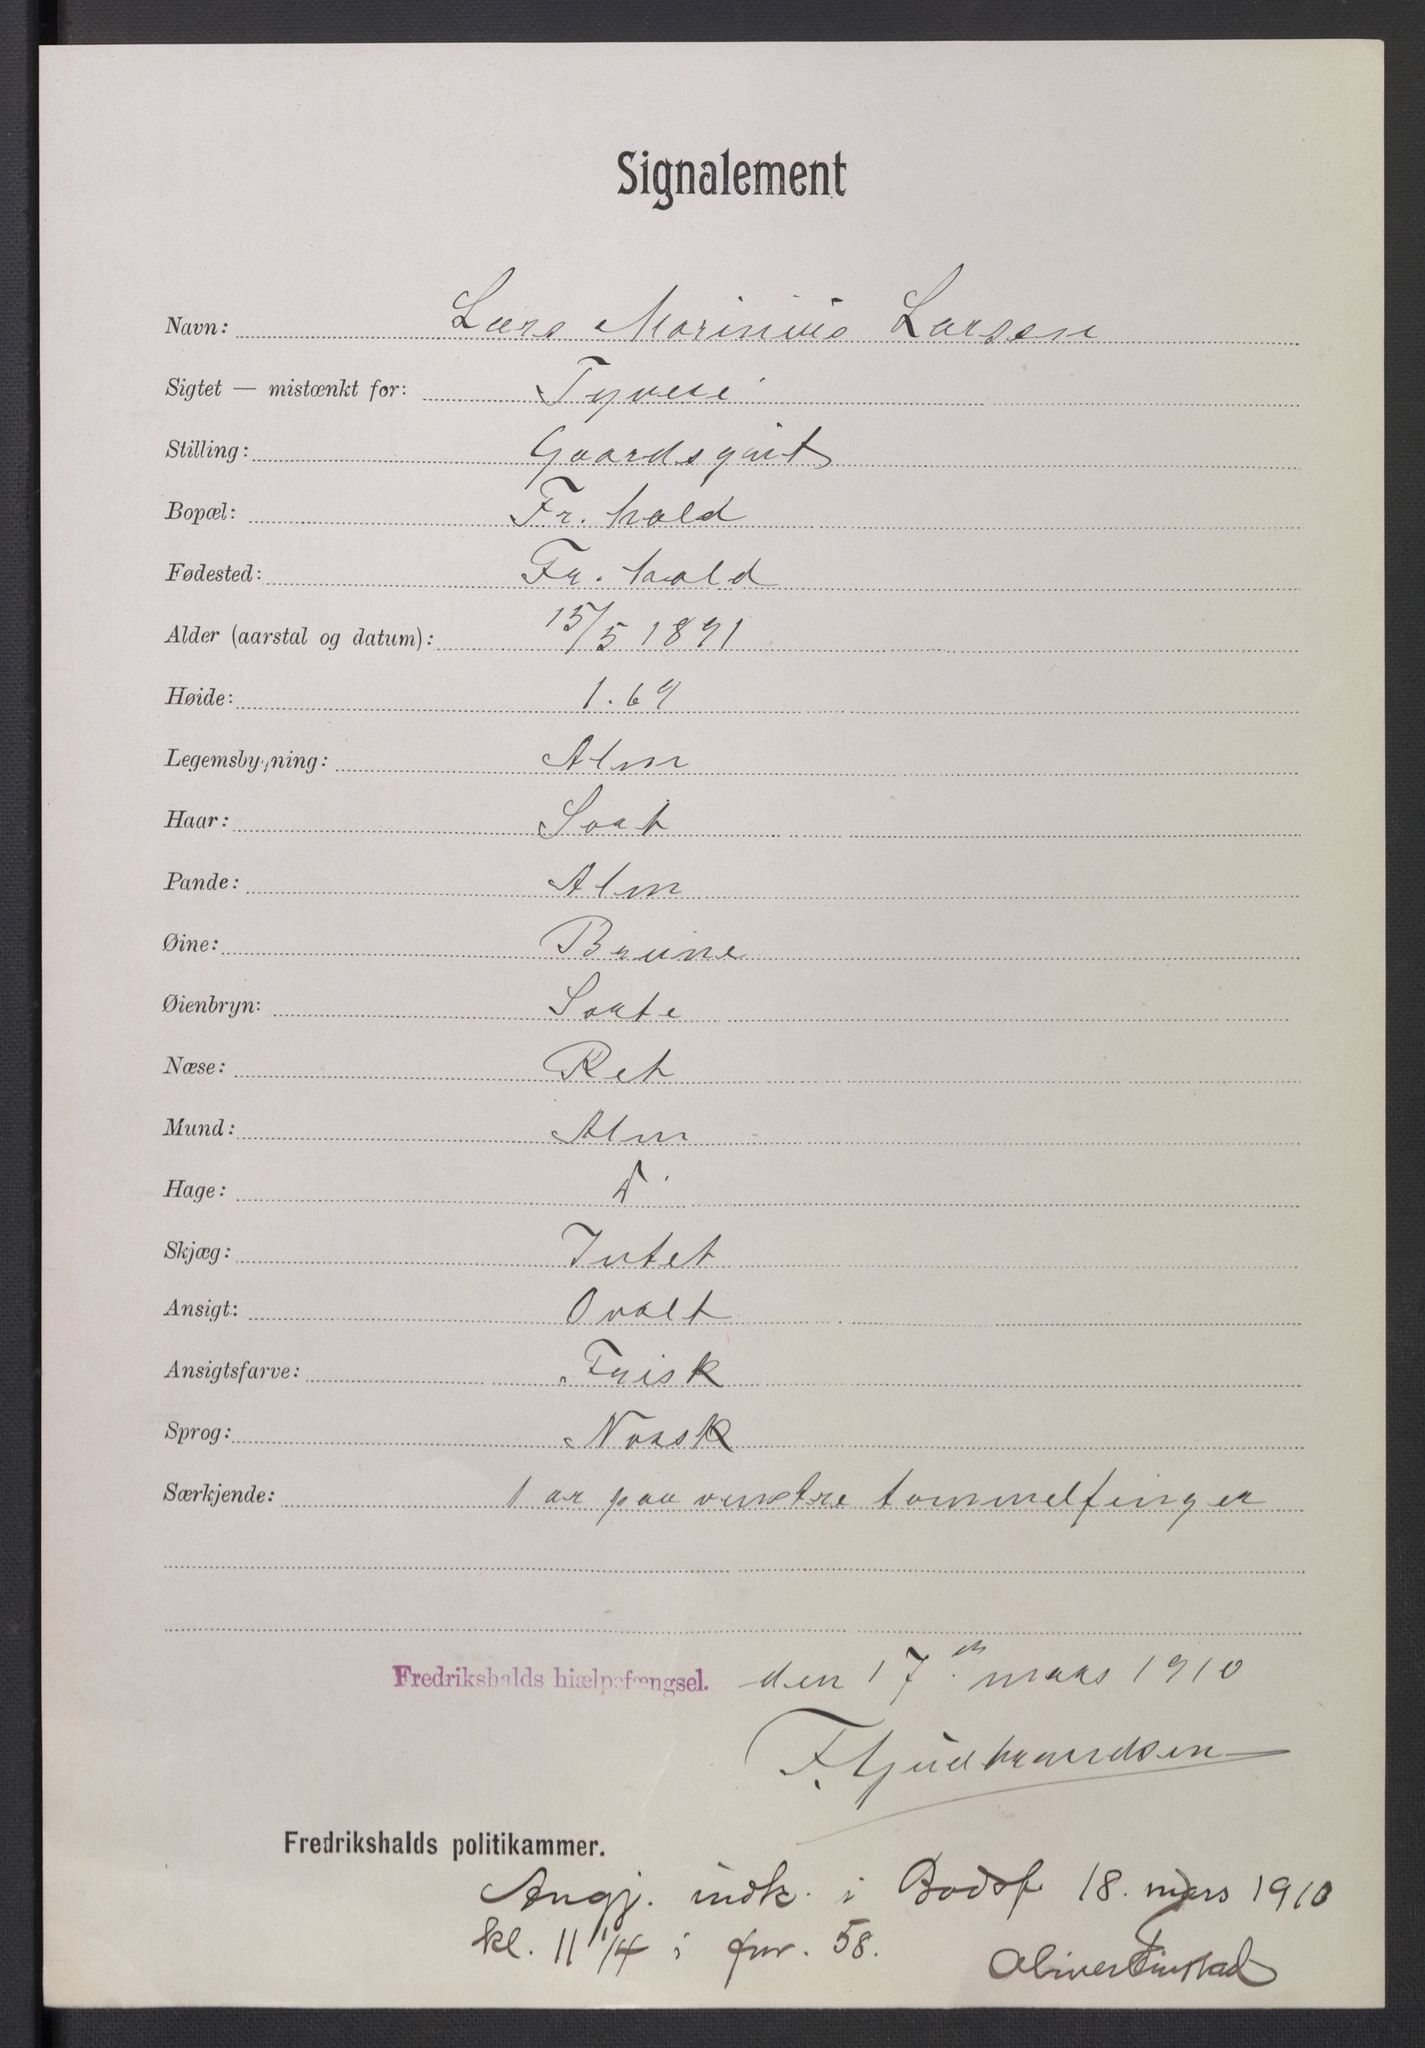 Signalement
Navn: Lars Marinius Larsen
Sigtet — mistænkt for: Tyveri
Stilling: Gaardsgut
Bopæl: Fr. hald
Fødested: Fr. hald
Alder (aarstal og datum): 15/5 1891
Høide: 1.69
Legemsbygning: Alm
Haar: Sort
Pande: Alm
Øine: Brune
Øienbryn: Sorte
Næse: Ret
Mund: Alm
Hage:
Skjæg: Intet
Ansigt: Ovalt
Ansigtsfarve: Frisk
Sprog: Norsk
Særkjende: 1 ar paa venstre tommelfinger
Fredrikshalds hjælpefængsel. den 17 mars 1910
F. Gudbrandsen
Fredrikshalds politikammer.
Angj. indk. i Bodsf 18. mars 1910
kl. 11 1/4 i fnr. 58.